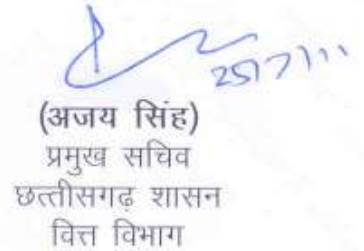 25/7/11
(अजय सिंह)
प्रमुख सचिव
छत्तीसगढ़ शासन
वित्त विभाग